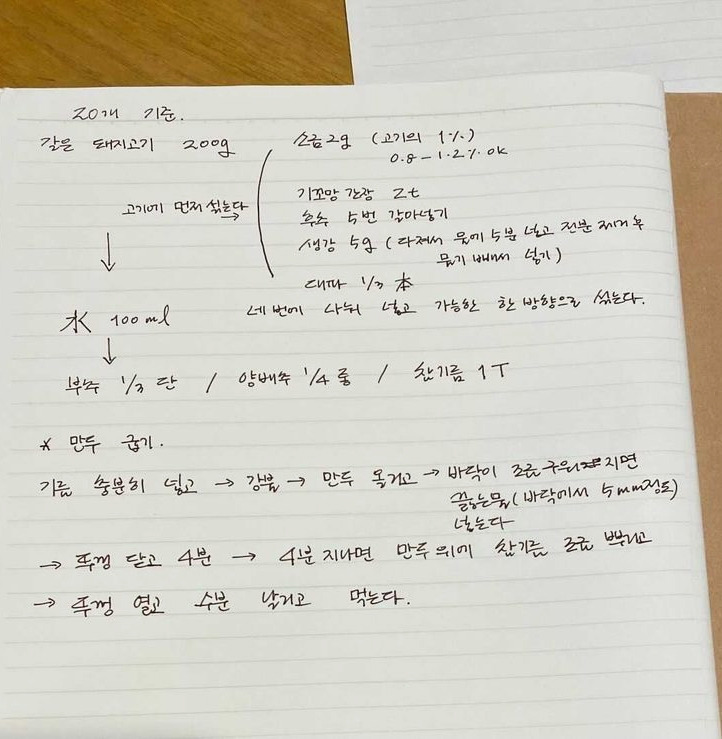 20개 기준.
갈은 돼지고기 200g
소금 2g (고기의 1%)
0.8-1.2% ok
고기에 먼저 섞는다
기꼬망 간장 2t
후추 5번 갈아넣기
생강 5g (다져서 물에 5분 넣고 전분 제거 후
물기 빼서 넣기)
대파 1/3 本
水 100ml
네 번에 나눠 넣고 가능한 한 방향으로 섞는다.
부추 1/3 단 / 양배추 1/4 통 / 참기름 1T
* 만두 굽기.
기름 충분히 넣고 → 강불 → 만두 올리고 → 바닥이 조금 구워지면
끓는물 (바닥에서 5mm정도)
넣는다
→ 뚜껑 닫고 4분 → 4분 지나면 만두 위에 참기름 조금 뿌리고
→ 뚜껑 열고 수분 날리고 먹는다.